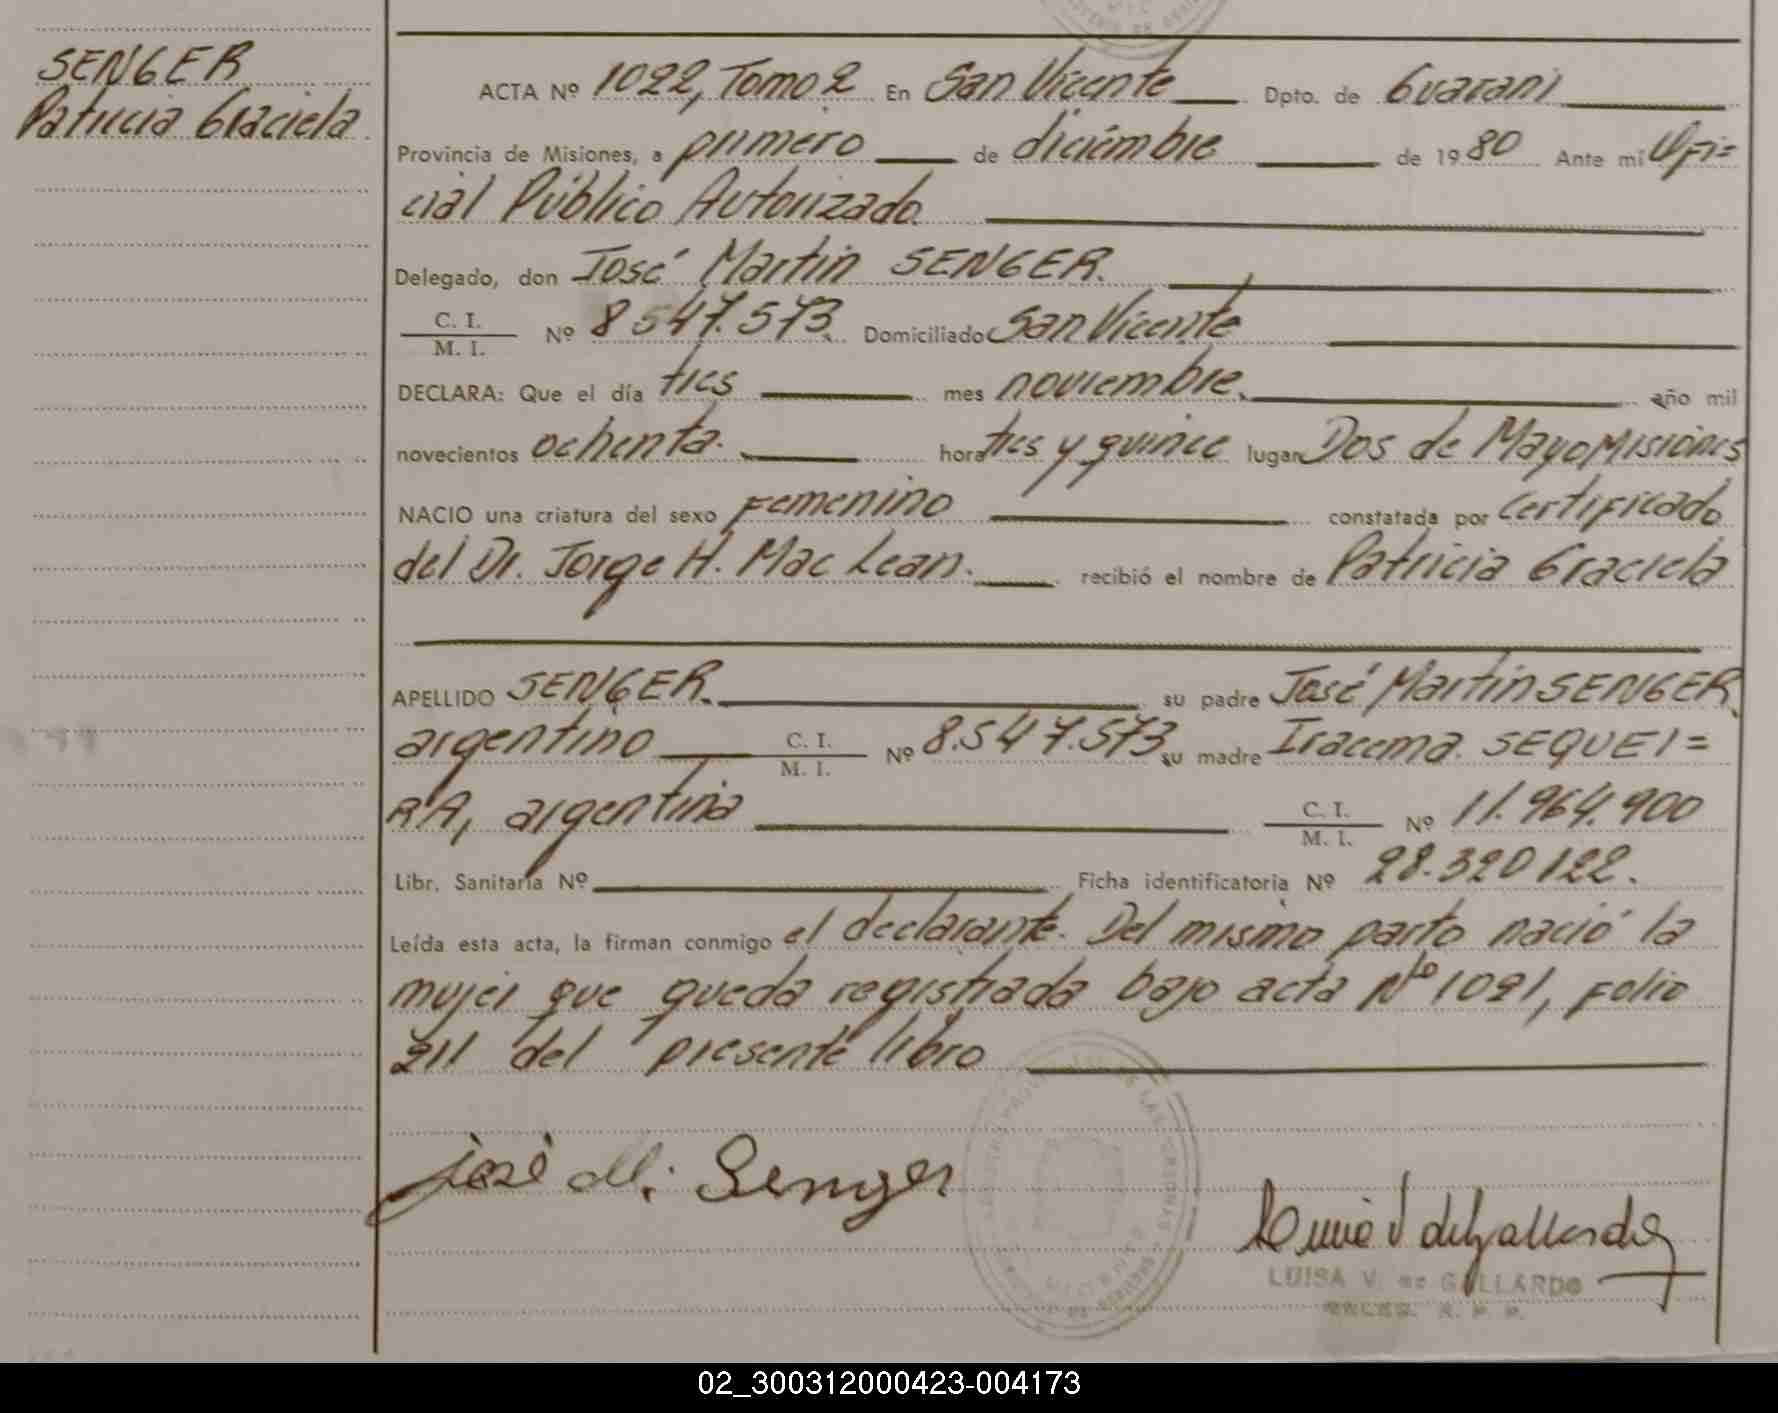 SENGER
Patricia Graciela
ACTA Nº 1022, Tomo 2 En San Vicente Dpto. de Guaraní
Provincia de Misiones, a primero de diciembre de 1980 Ante mí Ofi=
cial Público Autorizado
Delegado, don José Martin SENGER.
C. I.
M. I. Nº 8547.573. Domiciliado San Vicente
DECLARA: Que el día tres mes noviembre. año mil
novecientos ochenta. hora tres y quince lugar Dos de Mayo Misiones
NACIO una criatura del sexo Femenino constatada por certificado
del Dr. Jorge H. Mac Lean. recibió el nombre de Patricia Graciela
APELLIDO SENGER. su padre José Martin SENGER,
argentino C. I.
M. I. Nº 8.547.573 su madre Iracema SEQUEI=
RA, argentina C. I.
M. I. Nº 11.964.900
Libr. Sanitaria Nº Ficha identificatoria Nº 28.320122.
Leída esta acta, la firman conmigo el declarante. Del mismo parto nació la
mujer que queda registrada bajo acta Nº 1021, folio
211 del presente libro
José M. Senger
LUISA V. de GALLARDO
02_300312000423-004173